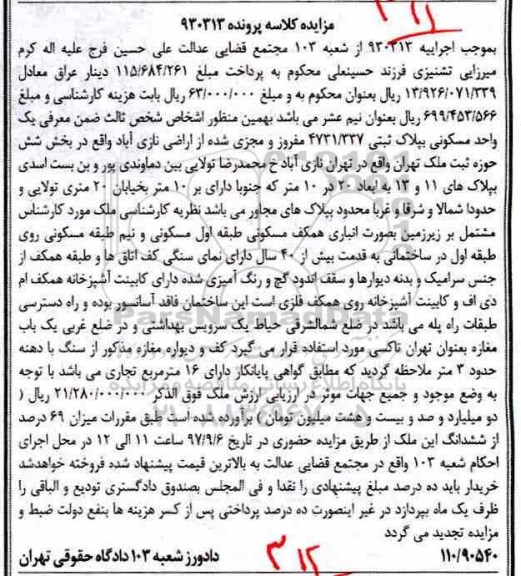 مزایده کلاسه پرونده ۹۳۰۳۱۳
بموجب اجراییه ۹۳۰۳۱۳ از شعبه ۱۰۳ مجتمع قضایی عدالت علی حسین فرج علیه اله کرم
میرزایی تشنیزی فرزند حسینعلی محکوم به پرداخت مبلغ ۱۱۵/۶۸۴/۲۶۱ دینار عراق معادل
۱۳/۹۲۶/۰۷۱/۳۳۹ ریال بعنوان محکوم به و مبلغ ۶۳/۰۰۰/۰۰۰ ریال بابت هزینه کارشناسی و مبلغ
۶۹۹/۴۵۳/۵۶۶ ریال بعنوان نیم عشر می باشد بهمین منظور اشخاص شخص ثالث ضمن معرفی یک
واحد مسکونی بپلاک ثبتی ۴۷۳۱/۳۳۷ مفروز و مجزی شده از اراضی نازی آباد واقع در بخش شش
حوزه ثبت ملک تهران واقع در تهران نازی آباد خ محمدرضا تولایی بین دماوندی پور و بن بست اسدی
بپلاک های ۱۱ و ۱۳ به ابعاد ۲۰ در ۱۰ متر که جنوبا دارای بر ۱۰ متر بخیابان ۲۰ متری تولایی و
حدودا شمالا و شرقا و غربا محدود بپلاک های مجاور می باشد نظریه کارشناسی ملک مورد کارشناس
مشتمل بر زیرزمین بصورت انباری همکف مسکونی طبقه اول مسکونی و نیم طبقه مسکونی روی
طبقه اول در ساختمانی به قدمت بیش از ۴۰ سال دارای نمای سنگی کف اتاق ها و طبقه همکف از
جنس سرامیک و بدنه دیوارها و سقف اندود گچ و رنگ آمیزی شده دارای کابینت آشپزخانه همکف ام
دی اف و کابینت آشپزخانه روی همکف فلزی است این ساختمان فاقد آسانسور بوده و راه دسترسی
طبقات راه پله می باشد در ضلع شمالشرقی حیاط یک سرویس بهداشتی و در ضلع غربی یک باب
مغازه بعنوان تهران تاکسی مورد استفاده قرار می گیرد کف و دیواره مغازه مذکور از سنگ با دهنه
حدود ۳ متر ملاحظه گردید که مطابق گواهی پایانکار دارای ۱۶ مترمربع تجاری می باشد با توجه
به وضع موجود و جمیع جهات موثر در ارزیابی ارزش ملک فوق الذکر ۲۱/۲۸۰/۰۰۰/۰۰۰ ریال (
دو میلیارد و صد و بیست و هشت میلیون تومان) برآورده شده است طبق مقررات میزان ۶۹ درصد
از ششدانگ این ملک از طریق مزایده حضوری در تاریخ ۹۷/۹/۶ ساعت ۱۱ الی ۱۲ در محل اجرای
احکام شعبه ۱۰۳ واقع در مجتمع قضایی عدالت به بالاترین قیمت پیشنهاد شده فروخته خواهدشد
خریدار باید ده درصد مبلغ پیشنهادی را نقدا و فی المجلس بصندوق دادگستری تودیع و الباقی را
ظرف یک ماه بپردازد در غیر اینصورت ده درصد پرداختی پس از کسر هزینه ها بنفع دولت ضبط و
مزایده تجدید می گردد
۱۱۰/۹۰۵۴۰ دادورز شعبه ۱۰۳ دادگاه حقوقی تهران